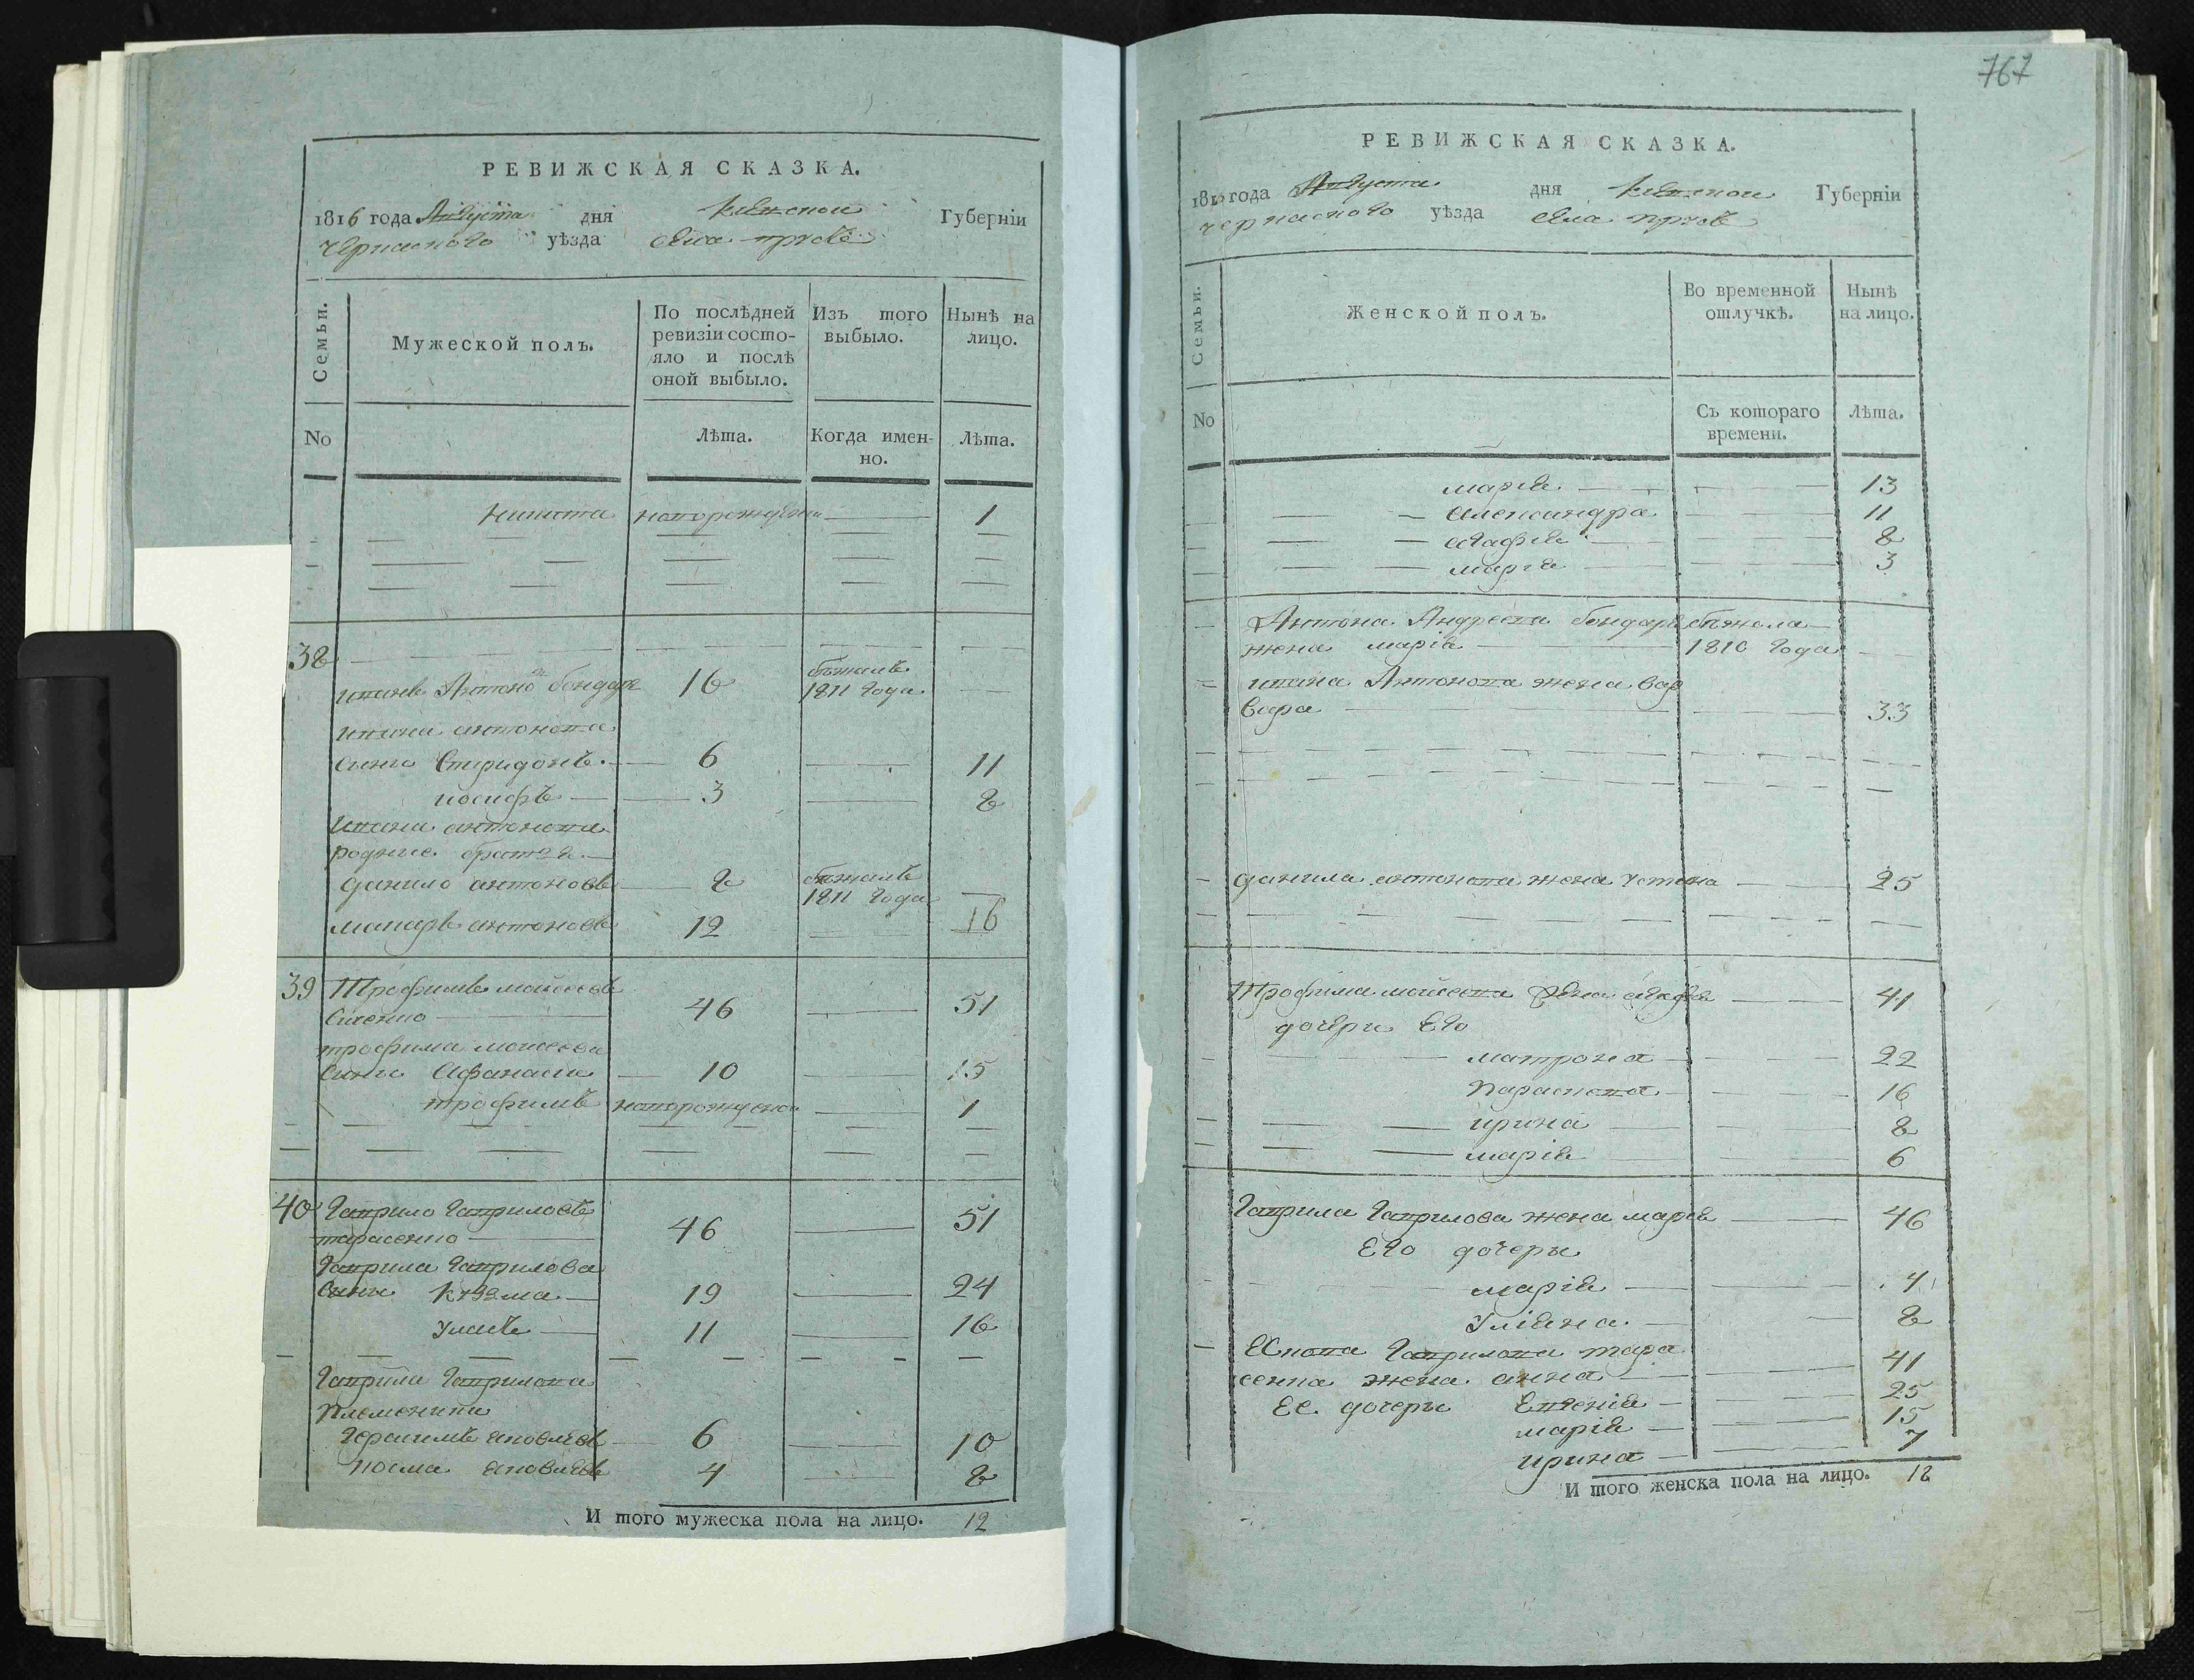 РЕВИЖСКАЯ СКАЗКА.
1816 года Августа дня Киевской Губерніи
Черкаского уѣзда села
Семьи.
Мужеской полъ.
По послѣдней ревизіи состояло и послѣ оной выбыло.
Изъ того выбыло.
Нынѣ на лицо.
No
Лѣта.
Когда именно.
Лѣта.
Никита новорожденъ 1
38
иванъ Антоновъ бондарь 16 бѣжалъ 1811 года
ивана антонова
сини Спиридонъ. 6 11
иосифъ 3 8
Ивана антонова
родние братя
данило антоновъ 8 бѣжалъ 1811 года
макаръ антоновъ 12 16
39 Трофимъ мойсеевъ 46 51
трофима мойсеева
сини Афанасий 10 15
трофимъ новорожденой 1
40 Гаврило Гавриловъ
тарасенко 46 51
Гаврила Гаврилова
Сины Кузма 19 24
Уласъ 11 16
Гаврила Гаврилова
Племеники
Герасимъ яковлевъ 6 10
косма яковлевъ 4 8
И того мужеска пола на лицо. 12
767
РЕВИЖСКАЯ СКАЗКА.
1816 года Августа дня Киевской Губерніи
черкаского уѣзда села
Семьи.
Женской полъ.
Во временной отлучкѣ.
Нынѣ на лицо.
No
Съ котораго времени.
Лѣта.
марія 13
Александра 11
агафія 8
марія 3
Антона Андреева бондаря бѣжала
жена марія 1810 года
ивана Антонова жена вар
вара 33
данила антонова жена Устина 25
Трофима мойсеева жена агафія 41
дочери Его
матрона 22
Параскева 16
ирина 8
марія 6
Гаврила Гаврилова жена марія 46
Его дочеры
марія
Уліяна 8
Якова Гаврилова тара
сенка жена анна 41
Ее дочеры Евгенія 25
марія 15
ирина 7
И того женска пола на лицо. 18